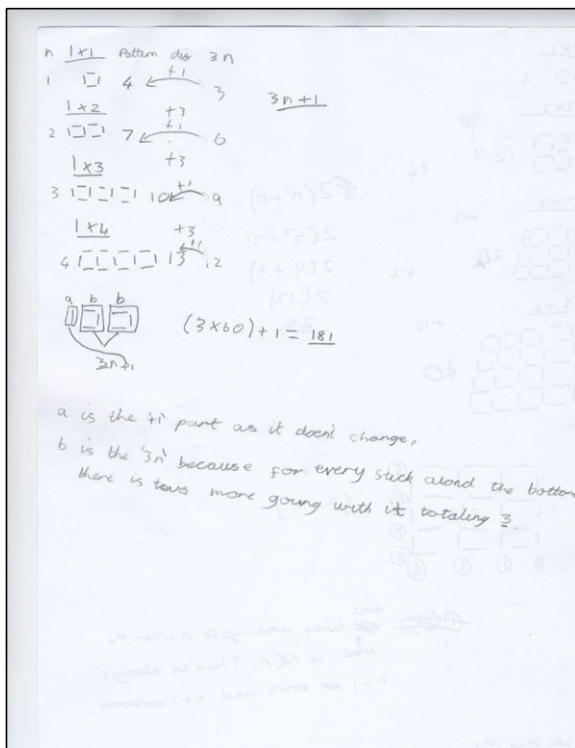 n 1x1 Pattern dis 3n
1 4 +1 3 3n+1
1x2 +3
2 7 +1 6
1x3 +3
3 10 +1 9
1x4 +3
4 13 +1 12
a b b
(3x60)+1= 181
3n+1
a is the '+1' part as it doesn't change,
b is the '3n' because for every stick alond the bottom
there is tows more going with it totaling 3.